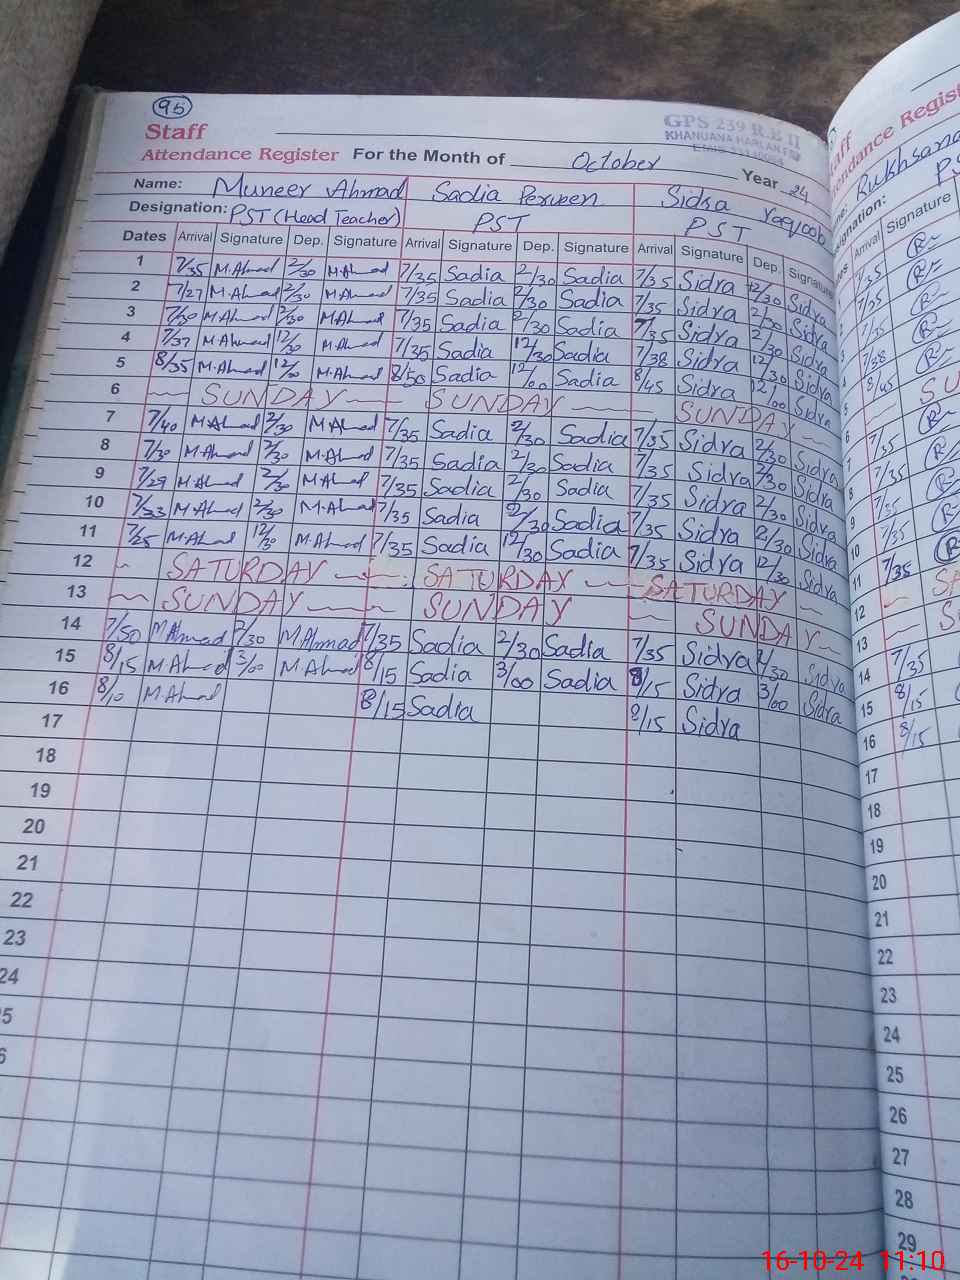 95
Staff
Attendance Register For the Month of October Year 24
GPS 239 R.B II
KHANUANA HARLAN FSD
Name: Muneer Ahmad Sadia Perveen Sidra Yaqoob
Designation: PST (Head Teacher) PST PST
Dates Arrival Signature Dep. Signature Arrival Signature Dep. Signature Arrival Signature Dep. Signature
1 7/35 M.Ahmad 2/30 M.Ahmad 7/35 Sadia 2/30 Sadia 7/35 Sidra 2/30 Sidra
2 7/27 M.Ahmad 2/30 M.Ahmad 7/35 Sadia 2/30 Sadia 7/35 Sidra 2/30 Sidra
3 7/30 M.Ahmad 2/30 M.Ahmad 7/35 Sadia 2/30 Sadia 7/35 Sidra 2/30 Sidra
4 7/37 M.Ahmad 12/30 M.Ahmad 7/35 Sadia 12/30 Sadia 7/38 Sidra 12/30 Sidra
5 8/35 M.Ahmad M.Ahmad 8/50 Sadia 12/00 Sadia 8/45 Sidra 12/00 Sidra
6 SUNDAY SUNDAY SUNDAY
7 7/40 M.Ahmad 2/30 M.Ahmad 7/35 Sadia 2/30 Sadia 7/35 Sidra 2/30 Sidra
8 7/30 M.Ahmad 2/30 M.Ahmad 7/35 Sadia 2/30 Sadia 7/35 Sidra 2/30 Sidra
9 7/29 M.Ahmad 2/30 M.Ahmad 7/35 Sadia 2/30 Sadia 7/35 Sidra 2/30 Sidra
10 7/33 M.Ahmad 2/30 M.Ahmad 7/35 Sadia 2/30 Sadia 7/35 Sidra 2/30 Sidra
11 7/25 M.Ahmad 12/30 M.Ahmad 7/35 Sadia 12/30 Sadia 7/35 Sidra 12/30 Sidra
12 SATURDAY SATURDAY SATURDAY
13 SUNDAY SUNDAY SUNDAY
14 7/50 M Ahmad 2/30 M Ahmad 7/35 Sadia 2/30 Sadia 7/35 Sidra 2/30 Sidra
15 8/15 M Ahmad 3/00 M Ahmad 8/15 Sadia 3/00 Sadia 8/15 Sidra 3/00 Sidra
16 8/10 M Ahmad 8/15 Sadia 8/15 Sidra
17
18
19
20
21
22
23
24
Attendance Regist
Rukhsana
Arrival Signature
7/35
7/35
7/35
7/38
8/45
5 SU
6
7 7/35
8 7/35
9 7/35
10 7/35
11 7/35
12
13
14 7/35
15 8/15
16 8/15
17
18
19
20
21
22
23
24
25
26
27
28
29
16-10-24 11:10